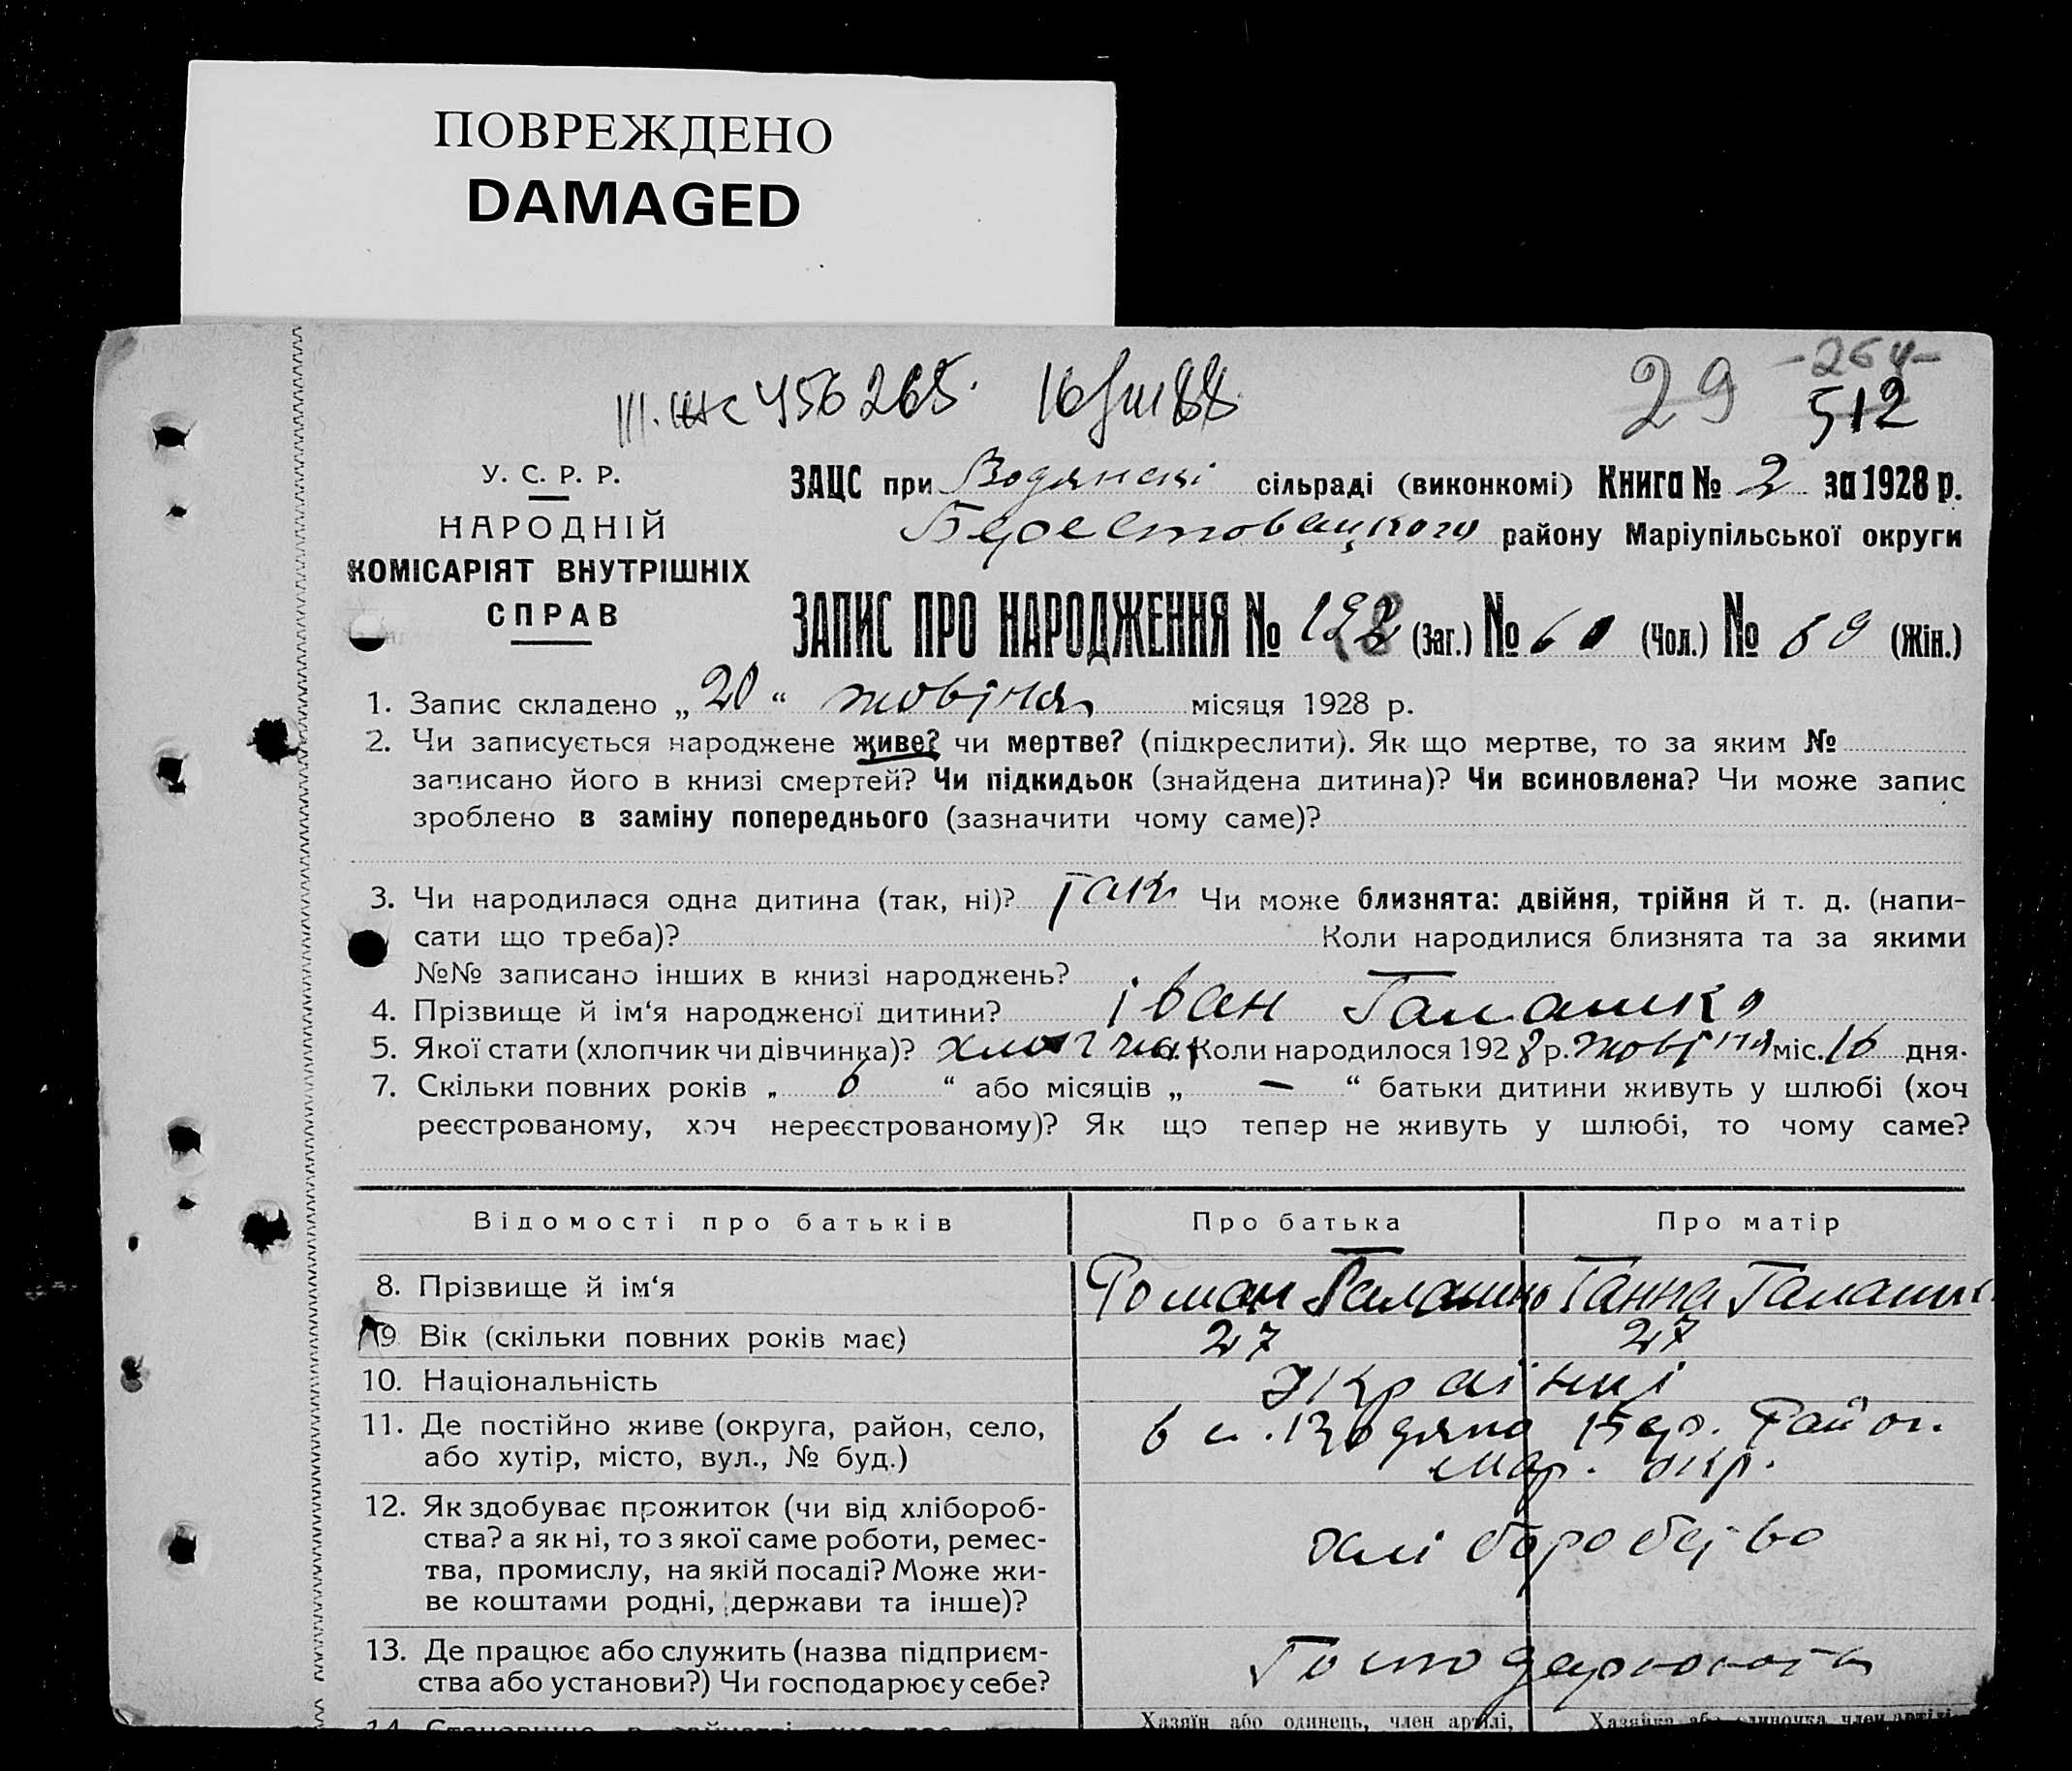 ПОВРЕЖДЕНО
DAMAGED
29 -264-
456265. 16 88 512
У. С. Р. Р.
НАРОДНІЙ
КОМІСАРІЯТ ВНУТРІШНІХ
СПРАВ
ЗАЦС при Водянскі сільраді (виконкомі) Книга № 2 за 1928 р.
Берестовецкого району Маріупільської округи
ЗАПИС ПРО НАРОДЖЕННЯ № (Заг.) № 60 (Чол.) № 69 (Жін.)
1. Запис складено „20“ жовтня місяця 1928 р.
2. Чи записується народжене живе? чи мертве? (підкреслити). Як що мертве, то за яким №
записано його в книзі смертей? Чи підкидьок (знайдена дитина)? Чи всиновлена? Чи може запис
зроблено в заміну попереднього (зазначити чому саме)?
3. Чи народилася одна дитина (так, ні)? Так Чи може близнята: двійня, трійня й т. д. (напи-
сати що треба)? Коли народилися близнята та за якими
№№ записано інших в книзі народжень?
4. Прізвище й ім‘я народженої дитини? Іван Галашко
5. Якої стати (хлопчик чи дівчинка)? хлопчик Коли народилося 1928 р. жовтня міс. 16 дня.
7. Скільки повних років „ 6 “ або місяців „ — “ батьки дитини живуть у шлюбі (хоч
реєстрованому, хоч нереєстрованому)? Як що тепер не живуть у шлюбі, то чому саме?
Відомості про батьків Про батька Про матір
8. Прізвище й ім‘я Роман Галашко Ганна Галашко
9. Вік (скільки повних років має) 27 27
10. Національність Україньці
11. Де постійно живе (округа, район, село, в с. Водяно Бер. Район.
або хутір, місто, вул., № буд.) Мар. окр.
12. Як здобуває прожиток (чи від хлібороб-
ства? а як ні, то з якої саме роботи, ремес- хліборобство
тва, промислу, на якій посаді? Може жи-
ве коштами родні, держави та інше)?
13. Де працює або служить (назва підприєм-
ства або установи?) Чи господарює у себе?
Хазяїн або одинець, член артілі, Хазяйка або одиночка, член артілі